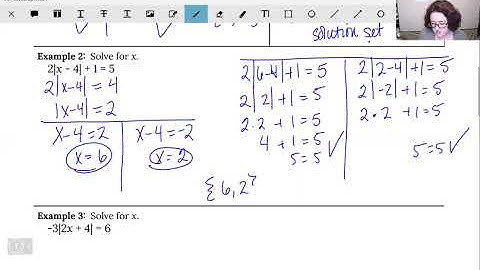 solution set
Example 2: Solve for x.
2|x − 4| + 1 = 5
2|x-4| = 4
|x-4| = 2
x-4=2
x=6
x-4=-2
x=2
2|6-4|+1=5
2|2|+1=5
2·2 +1=5
4 +1=5
5=5 ✓
2|2-4|+1=5
2|-2|+1=5
2·2 +1=5
5=5 ✓
{6,2
Example 3: Solve for x.
-3|2x + 4| = 6